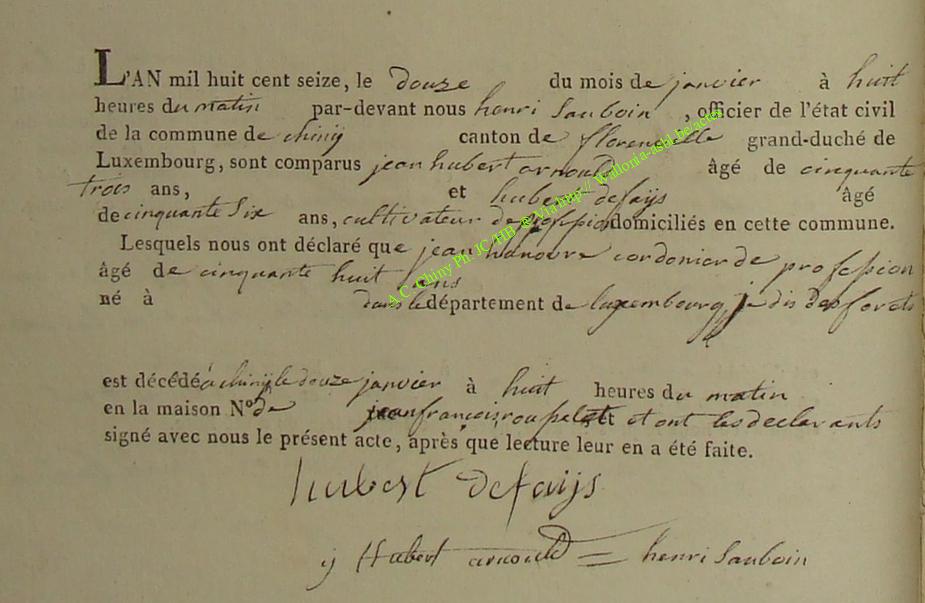 L'AN mil huit cent seize, le douze du mois de janvier à huit
heures du matin par-devant nous henri Sauboin, officier de l'état civil
de la commune de chiny canton de florenville grand-duché de
Luxembourg, sont comparus jean hubert arnould âgé de cinquante
trois ans, et hubert defaijs âgé
de cinquante Six ans, cultivateur de profession domiciliés en cette commune.
Lesquels nous ont déclaré que jean hanovre cordonier de profession
âgé de cinquante huit ans
né à dans le département de luxembourg je dis des forets
est décédé à chiny le douze janvier à huit heures du matin
en la maison N° de jean francois et ont les declarants
signé avec nous le présent acte, après que lecture leur en a été faite.
hubert defaijs
ij Hubert arnould = henri Sauboin
A.C. Chiny Ph JC/HB @Vlamup// Wallonia-asbl.be/actes